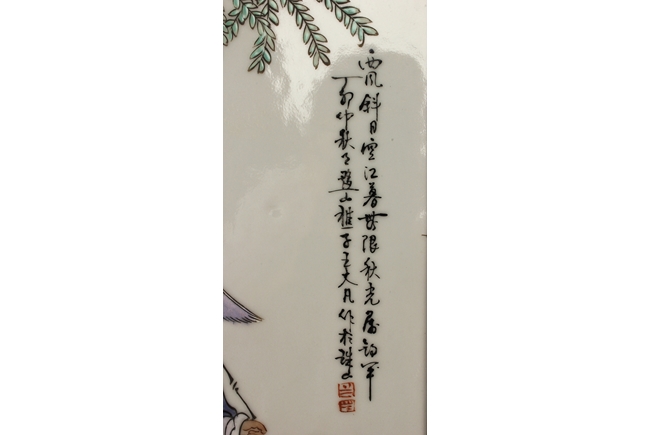 西風斜日空江暮無限秋光屬釣竿
丁卯仲秋黟山樵子王大凡作於珠山